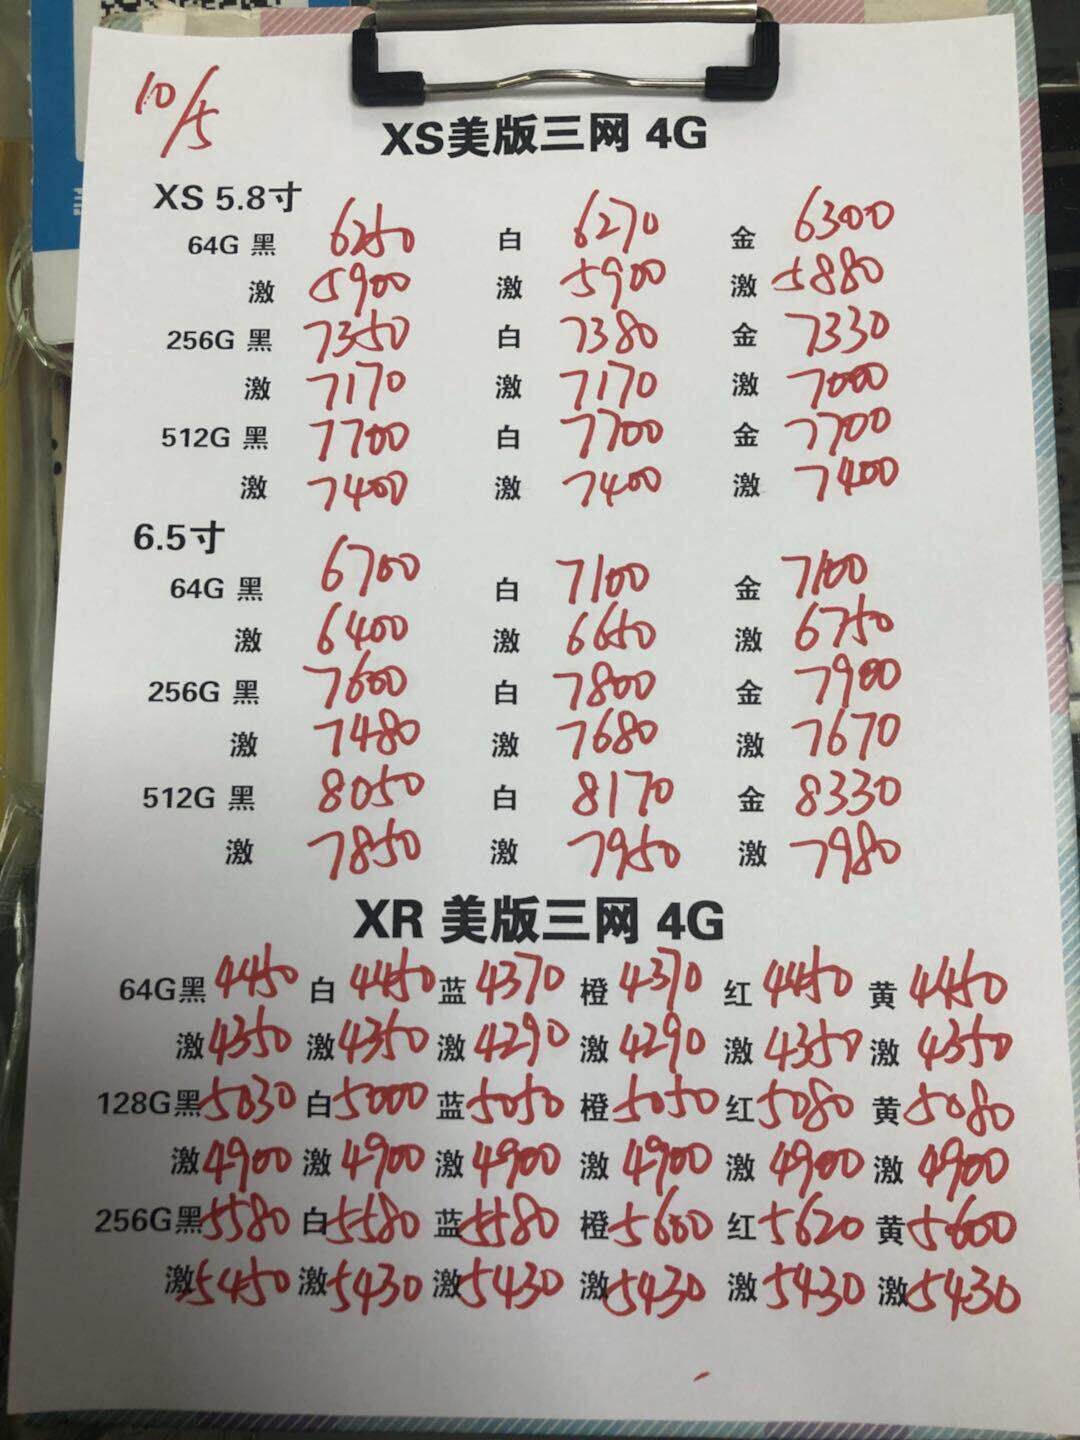 10/5
XS美版三网 4G
XS 5.8寸
64G 黑 6250 白 6270 金 6300
激 5900 激 5900 激 5880
256G 黑 7350 白 7380 金 7330
激 7170 激 7170 激 7000
512G 黑 7700 白 7700 金 7700
激 7400 激 7400 激 7400
6.5寸
64G 黑 6700 白 7100 金 7100
激 6400 激 6650 激 6750
256G 黑 7600 白 7800 金 7900
激 7480 激 7680 激 7670
512G 黑 8050 白 8170 金 8330
激 7850 激 7950 激 7980
XR 美版三网 4G
64G黑 4450 白 4450 蓝 4370 橙 4370 红 4450 黄 4450
激 4350 激 4350 激 4290 激 4290 激 4350 激 4350
128G黑 5030 白 5000 蓝 5050 橙 5050 红 5080 黄 5080
激 4900 激 4900 激 4900 激 4900 激 4900 激 4900
256G黑 5580 白 5580 蓝 5580 橙 5600 红 5620 黄 5600
激 5450 激 5430 激 5430 激 5430 激 5430 激 5430